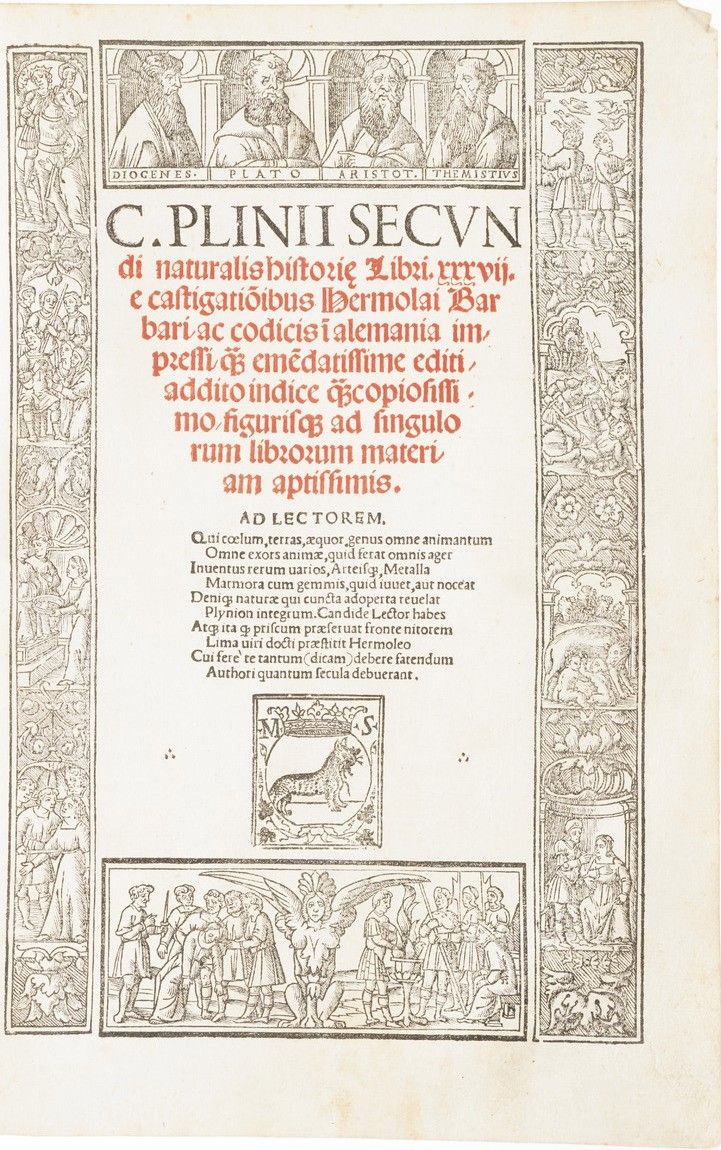 DIOGENES. PLATO ARISTOT. THEMISTIVS
C. PLINII SECVN
di naturalis historię Libri. xxxvij.
e castigatiõibus Hermolai Bar
bari/ac codicis ĩ alemania im/
pressi/q̃ꝫ emẽdatissime editi/
addito indice q̃ꝫcopiosissi/
mo/figurisqꝫ ad singulo
rum librorum materi/
am aptissimis.
AD LECTOREM.
Qui cœlum,terras,æquor,genus omne animantum
Omne exors animæ,quid ferat omnis ager
Inuentus rerum uarios,Arteisqꝫ,Metalla
Marmora cum gemmis,quid iuuet,aut noceat
Deniqꝫ naturæ qui cuncta adoperta reuelat
Plynion integrum.Candide Lector habes
Atqꝫ ita ꝙ priscum præseruat fronte nitorem
Lima uiri docti præstitit Hermoleo
Cui ferè te tantum(dicam)debere fatendum
Authori quantum secula debuerant.
M S